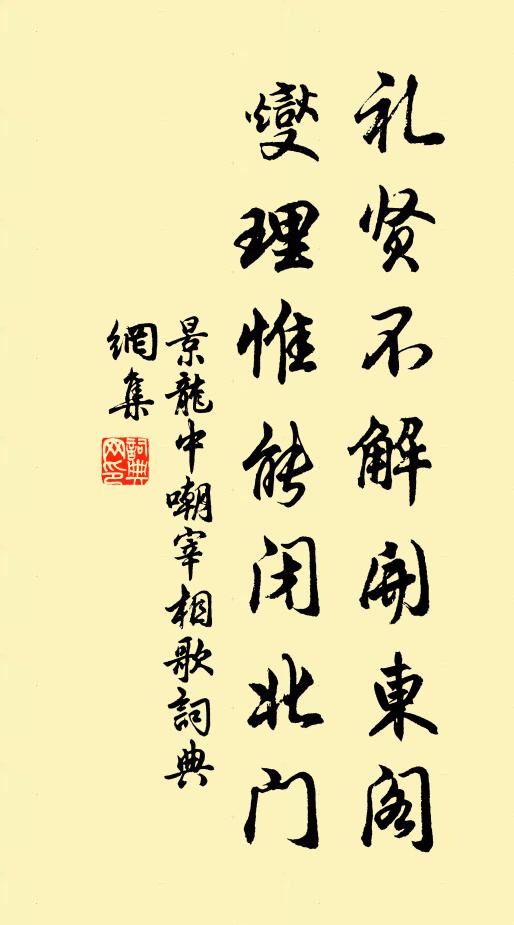 礼贤不解開東阁
燮理惟能闭北门
景龍中嘲宰相歌詞典
網集
詞典
网印